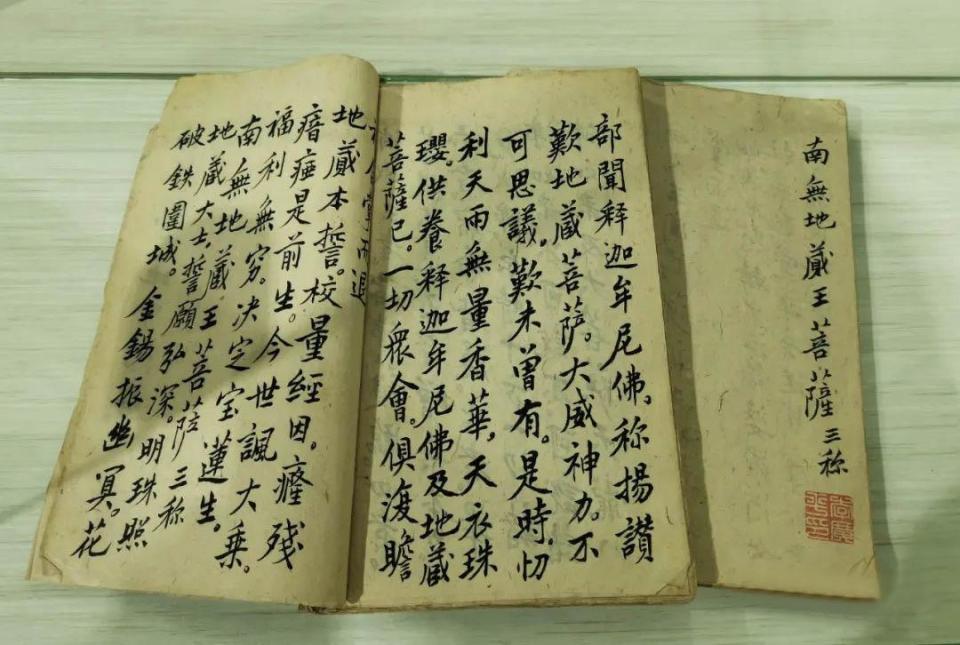 南無地蔵王菩薩三称
部聞释迦牟尼佛。称揚讃
歎地蔵菩萨。大威神力。不
可思議。歎未曾有。是時。忉
利天雨無量香華,天衣珠
璎。供養释迦牟尼佛及地蔵
菩薩已。一切衆會。俱復瞻
掌而退
地蔵本誓。校量經因。癃残
瘖瘂是前生。今世諷大乗。
福利無穷。决定宝蓮生。
南無地蔵王菩萨三称
地蔵大士。誓願弘深。明珠照
破鉄圍城。金錫振幽冥。花